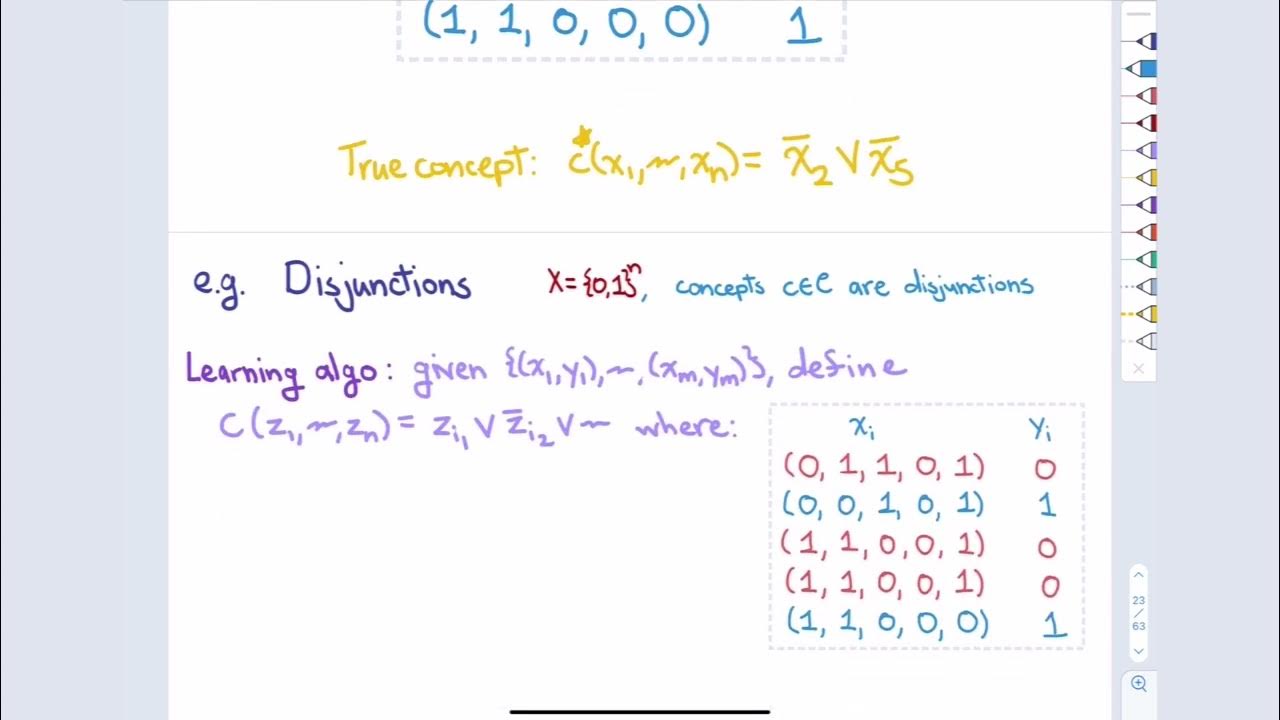 (1, 1, 0, 0, 0) 1
True concept: c*(x₁, ~, xₙ) = x̄₂ ∨ x̄₅
e.g. Disjunctions X = {0,1}ⁿ, concepts c∈C are disjunctions
Learning algo: given {(x₁,y₁), ~, (xₘ,yₘ)}, define
C(z₁, ~, zₙ) = z_{i₁} ∨ z̄_{i₂} ∨ ~ where:
xᵢ yᵢ
(0, 1, 1, 0, 1) 0
(0, 0, 1, 0, 1) 1
(1, 1, 0, 0, 1) 0
(1, 1, 0, 0, 1) 0
(1, 1, 0, 0, 0) 1
23
/
63